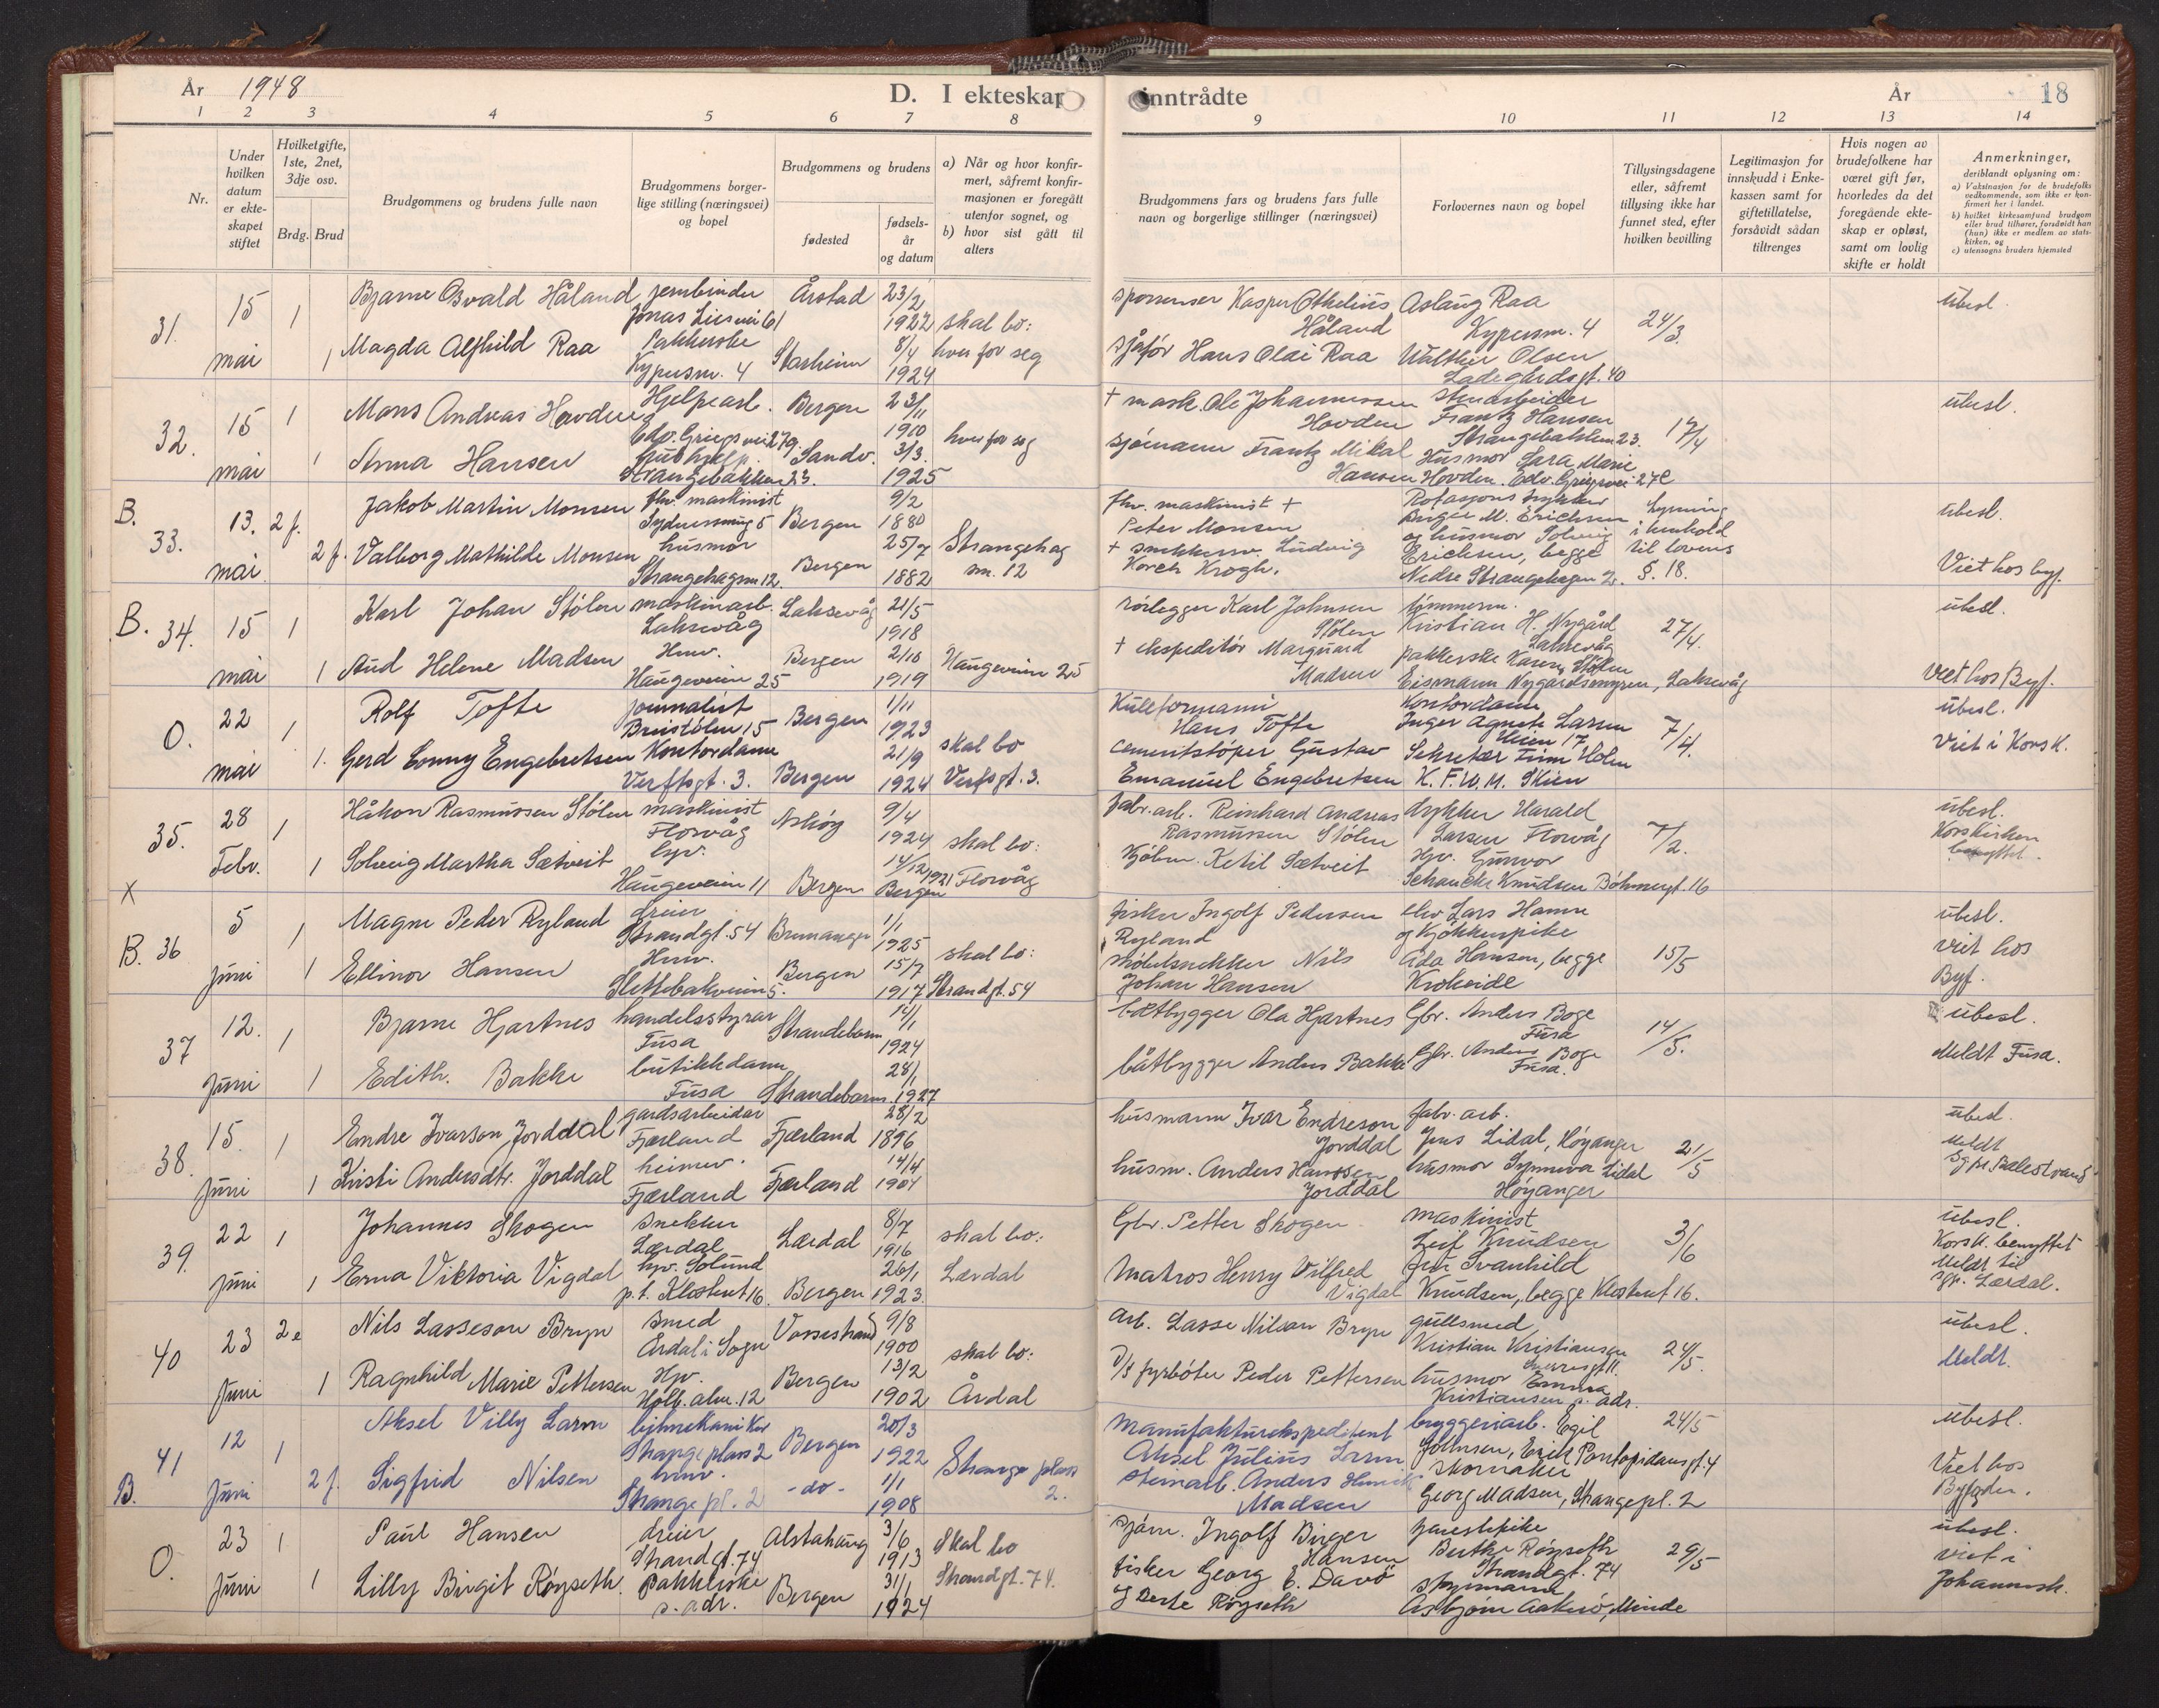 År 1948
D. I ekteskap inntrådte
År
18
1 2 3 4 5 6 7 8 9 10 11 12 13 14
Nr.
Under hvilken datum er ekte-skapet stiftet
Hvilketgifte, 1ste, 2net, 3dje osv.
Brdg. Brud
Brudgommens og brudens fulle navn
Brudgommens borger-lige stilling (næringsvei) og bopel
Brudgommens og brudens
fødested
fødsels-år og datum
a) Når og hvor konfir-mert, såfremt konfir-masjonen er foregått utenfor sognet, og
b) hvor sist gått til alters
Brudgommens fars og brudens fars fulle navn og borgerlige stillinger (næringsvei)
Forlovernes navn og bopel
Tillysingsdagene eller, såfremt tillysing ikke har funnet sted, efter hvilken bevilling
Legitimasjon for innskudd i Enke-kassen samt for giftetillatelse, forsåvidt sådan tiltrenges
Hvis nogen av brudefolkene har været gift før, hvorledes da det foregående ekte-skap er opløst, samt om lovlig skifte er holdt
Anmerkninger, deriblandt oplysning om:
a) Vaksinasjon for de brudefolks vedkommende, som ikke er kon-firmert her i landet.
b) hvilket kirkesamfund brudgom eller brud tilhører, forsåvidt han (hun) ikke er medlem av stats-kirken, og
c) utensogns bruders hjemsted
31. 15 mai 1 1
Bjarne Osvald Håland jernbinder Jonas Lies vei 61 Årstad 23/2 1922
Magda Alfhild Raa Pakkerske Kypersm. 4 Starheim 8/4 1924
skal bo: hver for seg
Kasper Othelius Håland
sjåfør Hans Olai Raa
Aslaug Raa Kypersm. 4
Walther Olsen Ladegårdsgt. 40
24/3.
ubesl.
32. 15 mai 1 1
Mons Andreas Hovden Hjelpearb. Edv. Griegs vei 27 Bergen 23/11 1900
Anna Hansen Strangebakken 23. Sandv. 3/3. 1925
hver for seg
+ mask. Ole Johannessen Hovden
sjømann Frantz Mikal Hansen
Frantz Hansen Strangebakken 23.
Husmor Sara Marie Hovden. Edv. Griegsvei 27
17/4
ubesl.
B. 33. 13. mai 2 f. 2 f.
Jakob Martin Monsen fhv. maskinist Sydnessmug 5 Bergen 9/2 1880
Valborg Mathilde Monsen husmor Strangehagen 12. Bergen 25/7 1882
Strangehag en. 12
fhv. maskinist + Peter Monsen
+ Ludvig Krogh.
Birger M. Erichsen og husmor Solveig Erichsen, begge Nedre Strangehagen 2.
Lysning i henhold til lovens §. 18.
ubesl.
Viet hos byf.
B. 34. 15 mai 1 1
Karl Johan Stølen maskinarb. Laksevåg Laksevåg 21/5 1918
Aud Helene Madsen Hmv. Haugeveien 25 Bergen 2/10 1919
Haugeveien 25
rørlegger Karl Johnsen Stølen
+ ekspeditør Marquard Madsen
tømmerm. Kristian H. Nygård Laksevåg
pakkerske Karen Stølen Eismann Nygårdsmyren, Laksevåg
27/4.
ubesl.
Viet hos Byf.
O. 22 mai 1 1.
Rolf Tofte journalist Breistølen 15 Bergen 1/11 1923
Gerd Conny Engebretsen Kontordame Verftsgt. 3. Bergen 21/9 1924
skal bo Verftsgt. 3.
Kulleformann Hans Tofte
cementstøper Gustav Emanuel Engebretsen
Kontordame Inger Agnete Larsen 17
Sekretær Finn Holm K.F.U.M. Skien
7/4.
ubesl.
Viet i Korsk.
35. 28 Febr. 1 1
Håkon Rasmussen Stølen maskinist Florvåg Askøy 9/4 1924
Solveig Martha Sætveit Haugeveien 11 Bergen 14/12 1921 Bergen
skal bo: Florvåg
fabr. arb. Reinhard Andreas Rasmussen Stølen
Kjøbm. Ketil Sætveit
trykker Harald Larsen Florvåg
Gunvor Schancke Knudsen Bøhmergt. 16
7/2.
ubesl.
Korskirken benyttet.
X
B. 36 5 Juni 1 1
Magne Peder Ryland dreier Strandgt. 54 Bremanger 1/1 1925
Ellinor Hansen Hmv. Slettebakveien 5. Bergen 15/7 1917
skal bo: Strandgt. 54
fisker Ingolf Pedersen Ryland
møbelsnekker Nils Johan Hansen
elev Lars Hamre og Kjøkkenpike Ada Hansen, begge Krokeide
15/5
ubesl.
viet hos Byf.
37 12. Juni 1 1
Bjarne Hjartnes handelsstyrar Fusa Strandebarm 14/1 1924
Edith. Bakke butikkdame Fusa Strandebarm 28/1 1927
båtbygger Ola Hjartnes
båtbygger Anders Bakke
Gbr. Anders Boge Fusa
Gbr. Anders Boge Fusa.
14/5.
ubesl.
Meldt Fusa.
38. 15. Juni 1 1
Endre Ivarson Jorddal gardsarbeidar Fjærland Fjærland 28/2 1896
Kristi Andersdtr. Jorddal heimev. Fjærland Fjærland 14/4 1904
husmann Ivar Endreson Jorddal
husm. Anders Hansson Jorddal
fabr. arb. Jens Lidal, Høyanger
husmor Synneva Lidal Høyanger
21/5
ubesl.
Meldt Balestrand
39. 22 Juni 1 1
Johannes Skogen snekker Lærdal Lærdal 8/7 1916
Erna Viktoria Vigdal hv. Solund p.t. Klosteret 16. Bergen 26/1 1923.
skal bo: Lærdal
Gbr. Petter Skogen
Matros Henry Vilfred Vigdal
Maskinist Leif Knudsen
fru Svanhild Knudsen, begge Klosteret 16.
3/6
ubesl.
Korsk. benyttet
Meldt til Lærdal.
40 23 Juni 2e 1
Nils Lasseson Bryn smed Årdal i Sogn Vossestrand 9/8 1900
Ragnhild Marie Pettersen Hv. Holb. alm. 12 Bergen 13/2 1902
skal bo: Årdal
Arb. Lasse Nilson Bryn
D/s fyrbøter Peder Pettersen
gullsmed Kristian Kristiansen Sverresgt. 11.
husmor Emma Kristiansen s. adr.
24/5.
ubesl.
Meldt.
41 B. 12 Juni 1 2 f.
Aksel Villy Larm Strange plass 2 Bergen 20/3 1922
Sigfrid Nilsen hmv. Strange pl. 2 -do- 1/1 1908
Strange plass 2.
Manufakturekspeditent Aksel Julius Larm
stenarb. Anders Henrik Madsen
bryggeriarb. Egil Johnsen, Erik Pontoppidansgt. 4
skomaker Georg Madsen, Strangepl. 2
24/5
ubesl.
Viet hos Byfgden.
O. 23 Juni 1 1
Paul Hansen dreier Strandgt. 74 Alstahaug 3/6 1913
Lilly Birgit Røyseth. Pakkerske s. adr. Bergen 31/1 1924
Skal bo Strandgt. 74.
sjøm. Ingolf Birger Hansen
fisker Georg E. Davø og Berte Røyseth
Berthe Røyseth Strandgt. 74
styrmann Asbjørn Aakerø, Minde
29/5
ubesl.
viet i Johannesk.